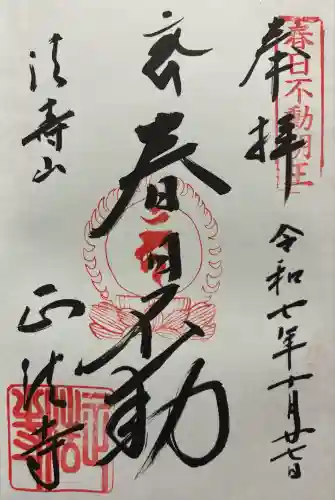 奉拝
春日不動明王
令和七年十一月廿七日
春日不動
法寿山
正法寺